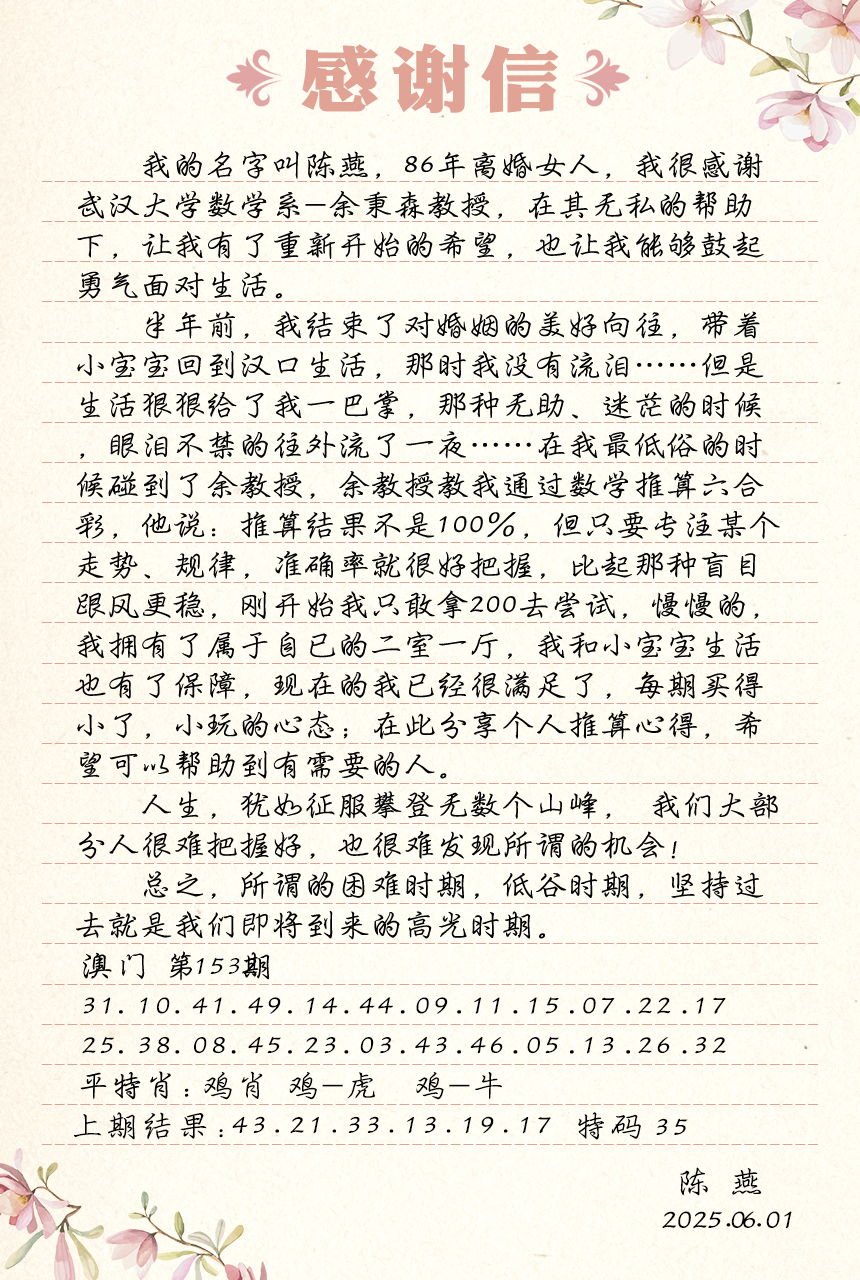 感谢信
我的名字叫陈燕，86年离婚女人，我很感谢
武汉大学数学系—余秉森教授，在其无私的帮助
下，让我有了重新开始的希望，也让我能够鼓起
勇气面对生活。
半年前，我结束了对婚姻的美好向往，带着
小宝宝回到汉口生活，那时我没有流泪……但是
生活狠狠给了我一巴掌，那种无助、迷茫的时候
，眼泪不禁的往外流了一夜……在我最低俗的时
候碰到了余教授，余教授教我通过数学推算六合
彩，他说：推算结果不是100%，但只要专注某个
走势、规律，准确率就很好把握，比起那种盲目
跟风更稳，刚开始我只敢拿200去尝试，慢慢的，
我拥有了属于自已的二室一厅，我和小宝宝生活
也有了保障，现在的我已经很满足了，每期买得
小了，小玩的心态；在此分享个人推算心得，希
望可以帮助到有需要的人。
人生，犹如征服攀登无数个山峰， 我们大部
分人很难把握好，也很难发现所谓的机会！
总之，所谓的困难时期，低谷时期，坚持过
去就是我们即将到来的高光时期。
澳门 第153期
31.10.41.49.14.44.09.11.15.07.22.17
25.38.08.45.23.03.43.46.05.13.26.32
平特肖：鸡肖 鸡—虎 鸡—牛
上期结果：43.21.33.13.19.17 特码 35
陈 燕
2025.06.01